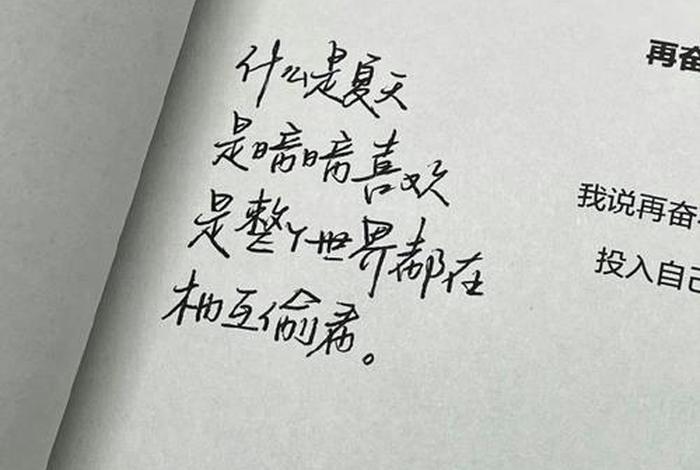 什么是夏天
是暗暗喜欢
是整个世界都在
相互偷看。
再奋
我说再奋
投入自己